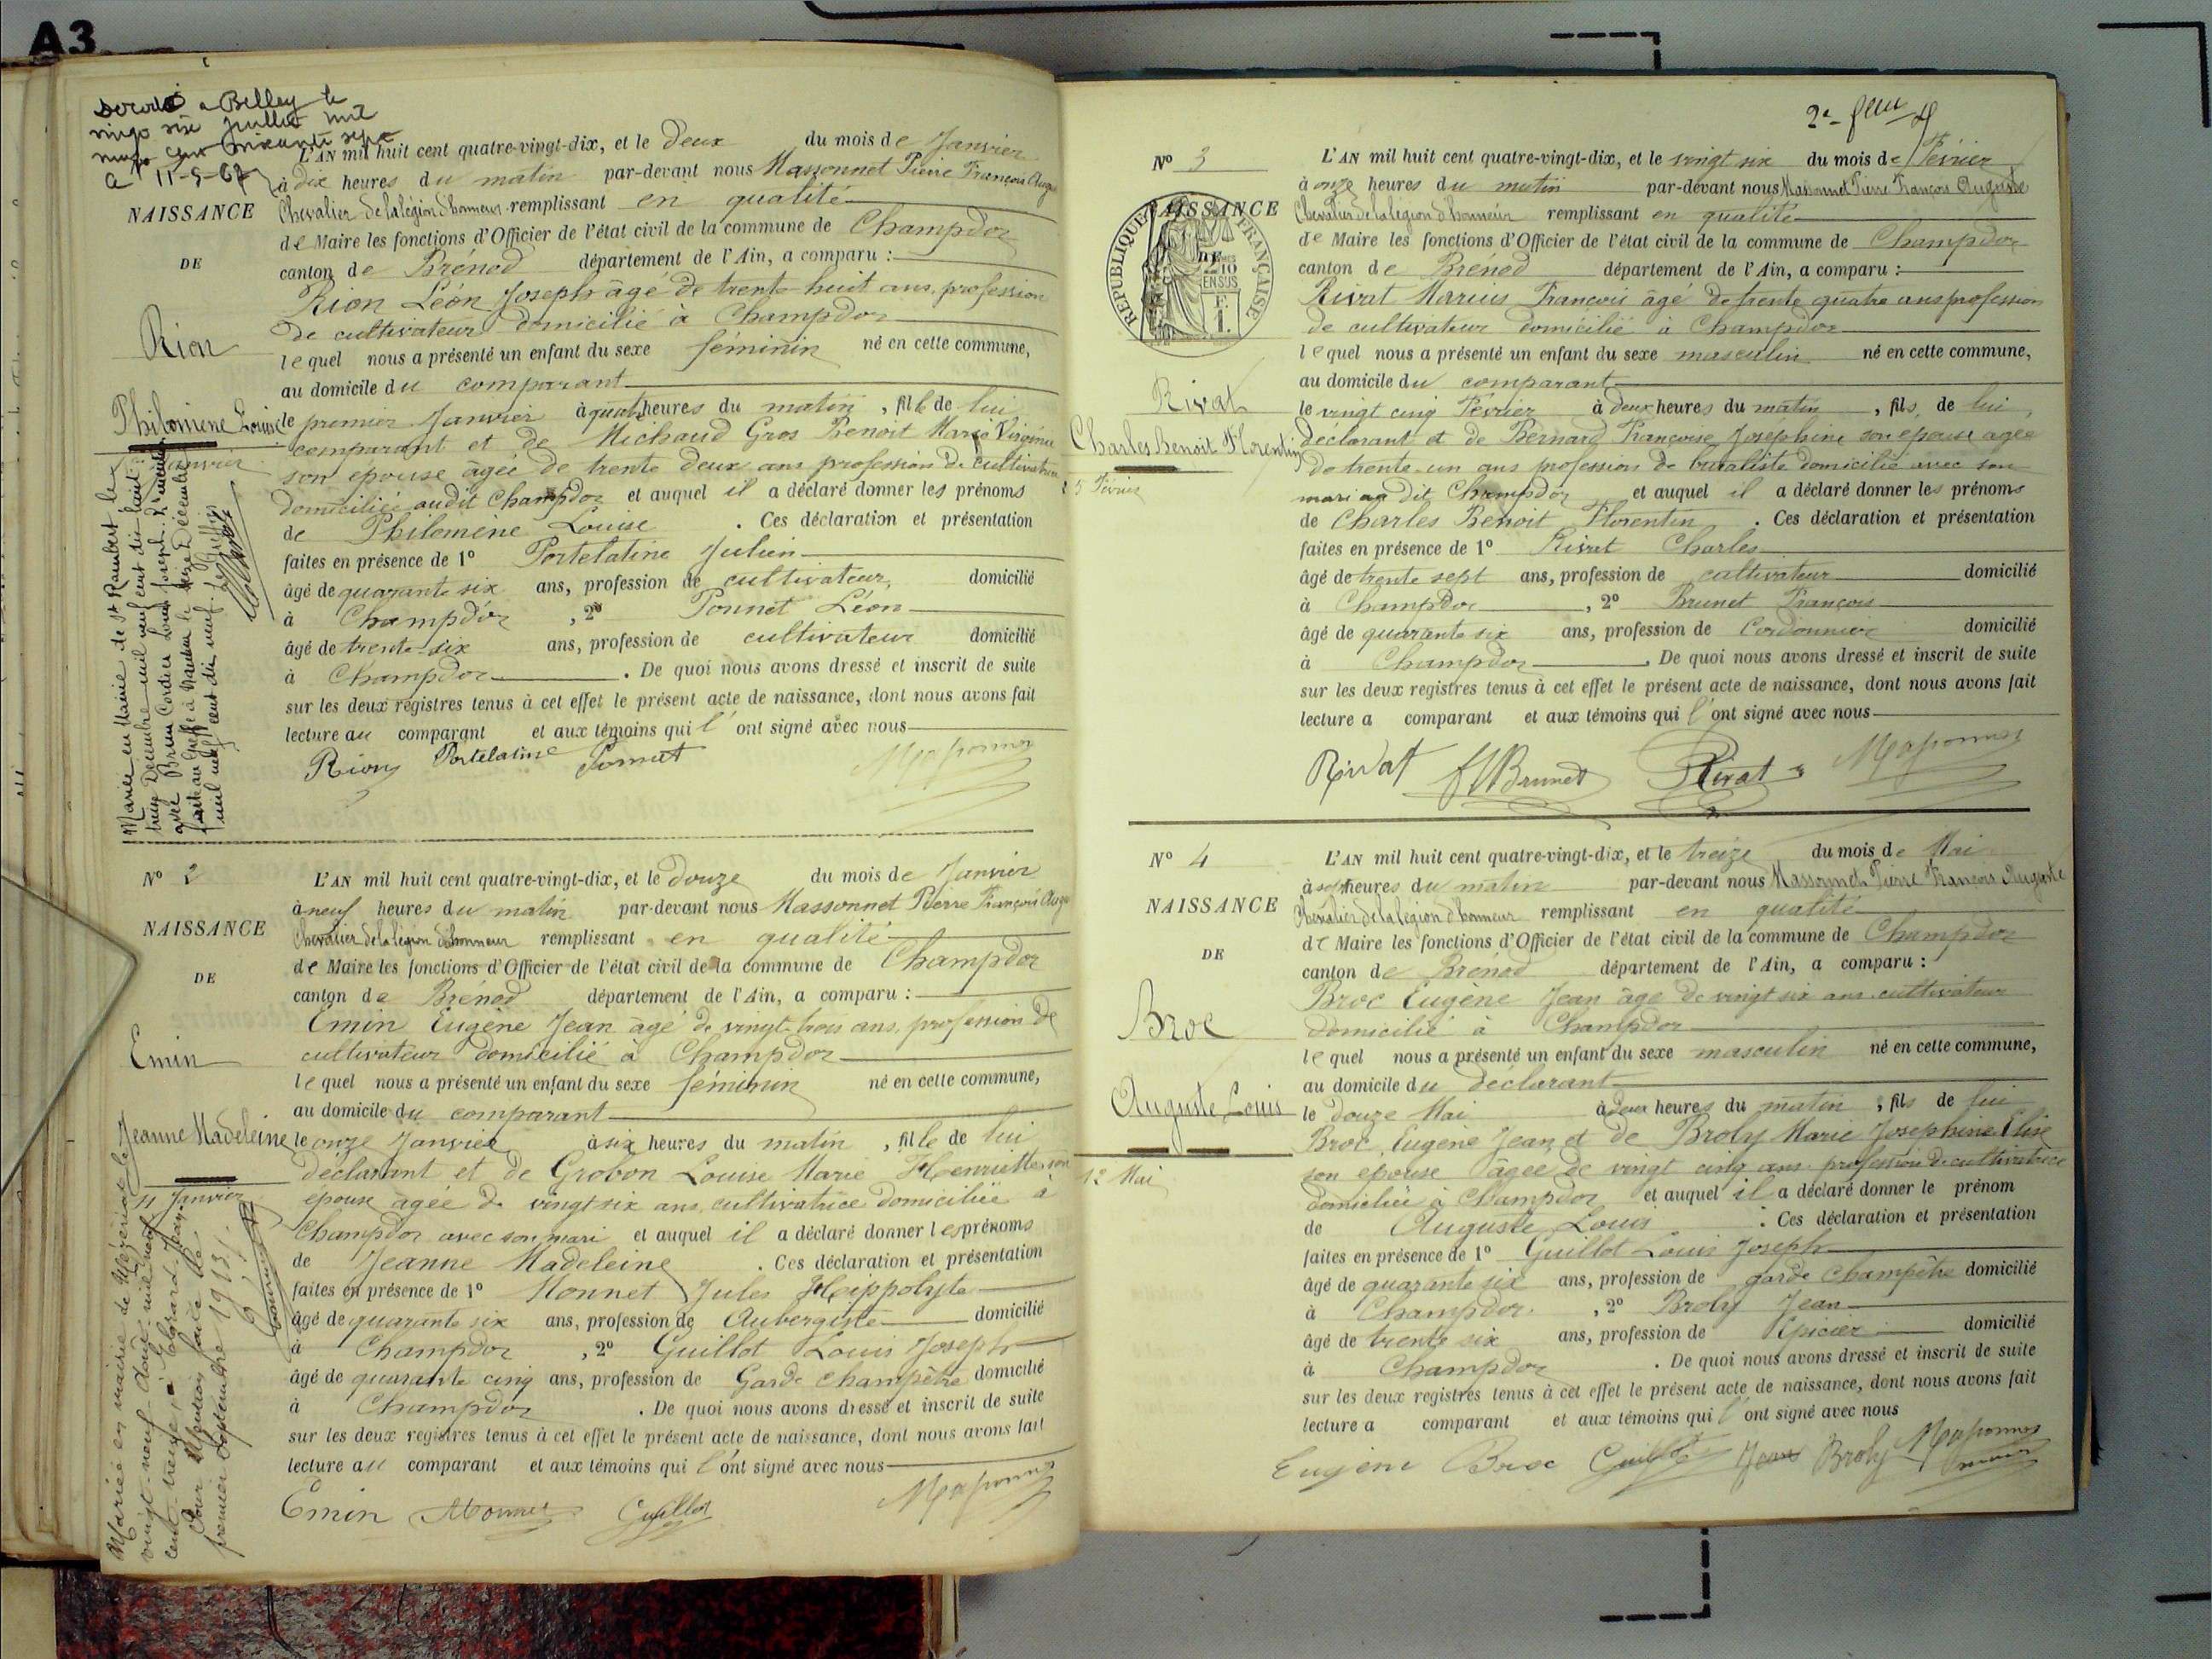 A3
décédé à Belley le
vingt six juillet mil
neuf cent soixante sept
11-9-67
NAISSANCE
DE
Rion
Philomène Louise
1 Janvier
Mariée en Mairie de St Rambert le
treize Décembre mil neuf cent dix huit
avec Brun Cordier Louis Joseph.
fait au greffe à Nantua le treize Décembre
mil neuf cent dix neuf. Le Greffier
L'AN mil huit cent quatre-vingt-dix, et le Deux du mois de Janvier
à dix heures du matin par-devant nous Massonnet Pierre François Augu
Chevalier de la légion d'honneur remplissant en qualité
de Maire les fonctions d'Officier de l'état civil de la commune de Champdor
canton de Brénod département de l'Ain, a comparu :
Rion Léon Joseph âgé de trente huit ans, profession
de cultivateur domicilié à Champdor
lequel nous a présenté un enfant du sexe féminin né en cette commune,
au domicile du comparant
le premier Janvier à quatre heures du matin, fille de lui
comparant et de Michaud Gros Benoit Marie Virginie
son épouse âgée de trente deux ans profession de cultivatrice
domiciliée audit Champdor et auquel il a déclaré donner les prénoms
de Philomène Louise. Ces déclaration et présentation
faites en présence de 1º Portelatine Julien
âgé de quarante six ans, profession de cultivateur, domicilié
à Champdor, 2º Ponnet Léon
âgé de trente six ans, profession de cultivateur domicilié
à Champdor. De quoi nous avons dressé et inscrit de suite
sur les deux registres tenus à cet effet le présent acte de naissance, dont nous avons fait
lecture au comparant et aux témoins qui l'ont signé avec nous
Rion Portelatine Ponnet Massonnet
Nº 2
NAISSANCE
DE
Emin
Jeanne Madeleine
11 Janvier
Mariée en mairie de Mézériat le
vingt-neuf Août mil neuf
cent treize, à Chorard Jean
Pour Mention faite le
premier Septembre 1913.
L'AN mil huit cent quatre-vingt-dix, et le douze du mois de Janvier
à neuf heures du matin par-devant nous Massonnet Pierre François Augu
Chevalier de la légion d'honneur remplissant en qualité
de Maire les fonctions d'Officier de l'état civil de la commune de Champdor
canton de Brénod département de l'Ain, a comparu :
Emin Eugène Jean âgé de vingt-trois ans, profession de
cultivateur domicilié à Champdor
lequel nous a présenté un enfant du sexe féminin né en cette commune,
au domicile du comparant
le onze Janvier à six heures du matin, fille de lui
déclarant et de Grobon Louise Marie Henriette son
épouse âgée de vingt six ans, cultivatrice domiciliée à
Champdor avec son mari et auquel il a déclaré donner les prénoms
de Jeanne Madeleine. Ces déclaration et présentation
faites en présence de 1º Monnet Jules Hippolyte
âgé de quarante six ans, profession de Aubergiste domicilié
à Champdor, 2º Guillot Louis Joseph
âgé de quarante cinq ans, profession de Garde champêtre domicilié
à Champdor. De quoi nous avons dressé et inscrit de suite
sur les deux registres tenus à cet effet le présent acte de naissance, dont nous avons fait
lecture au comparant et aux témoins qui l'ont signé avec nous
Emin Monnet Guillot Massonnet
2e feuil
Nº 3
NAISSANCE
DE
RÉPUBLIQUE FRANÇAISE
2/10 EN SUS
1 F.
Rivat
Charles Benoit Florentin
25 Février
L'AN mil huit cent quatre-vingt-dix, et le vingt six du mois de Février
à onze heures du matin par-devant nous Massonnet Pierre François Auguste
Chevalier de la légion d'honneur remplissant en qualité
de Maire les fonctions d'Officier de l'état civil de la commune de Champdor
canton de Brénod département de l'Ain, a comparu :
Rivat Marius François âgé de trente quatre ans profession
de cultivateur domicilié à Champdor
lequel nous a présenté un enfant du sexe masculin né en cette commune,
au domicile du comparant
le vingt cinq Février à deux heures du matin, fils de lui
déclarant et de Bernard Françoise Josephine son épouse agée
de trente-un ans profession de buraliste domicilié avec son
mari au dit Champdor et auquel il a déclaré donner les prénoms
de Charles Benoit Florentin. Ces déclaration et présentation
faites en présence de 1º Rivat Charles
âgé de trente sept ans, profession de cultivateur domicilié
à Champdor, 2º Brunet François
âgé de quarante six ans, profession de Cordonnier domicilié
à Champdor. De quoi nous avons dressé et inscrit de suite
sur les deux registres tenus à cet effet le présent acte de naissance, dont nous avons fait
lecture a comparant et aux témoins qui l'ont signé avec nous
Rivat Brunet Rivat Massonnet
Nº 4
NAISSANCE
DE
Broc
Auguste Louis
12 Mai
L'AN mil huit cent quatre-vingt-dix, et le treize du mois de Mai
à sept heures du matin par-devant nous Massonnet Pierre François Auguste
Chevalier de la légion d'honneur remplissant en qualité
de Maire les fonctions d'Officier de l'état civil de la commune de Champdor
canton de Brénod département de l'Ain, a comparu :
Broc Eugène Jean âgé de vingt six ans cultivateur
domicilié à Champdor
lequel nous a présenté un enfant du sexe masculin né en cette commune,
au domicile du déclarant
le douze Mai à deux heures du matin, fils de lui
Broc Eugène Jean, et de Broly Marie Josephine Elise
son épouse âgée de vingt cinq ans profession de cultivatrice
domiciliée à Champdor et auquel il a déclaré donner le prénom
de Auguste Louis. Ces déclaration et présentation
faites en présence de 1º Guillot Louis Joseph
âgé de quarante six ans, profession de garde champêtre domicilié
à Champdor, 2º Broly Jean
âgé de trente six ans, profession de Epicier domicilié
à Champdor. De quoi nous avons dressé et inscrit de suite
sur les deux registres tenus à cet effet le présent acte de naissance, dont nous avons fait
lecture a comparant et aux témoins qui l'ont signé avec nous
Eugène Broc Guillot Jean Broly Massonnet